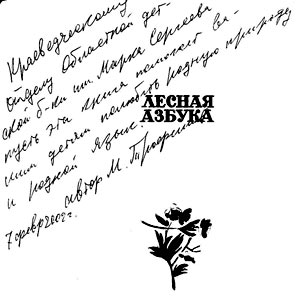 Краеведческому
отделу Областной дет-
ской б-ки им. Марка Сергеева
пусть эта книга поможет ва-
шим детям полюбить родную природу
и родной язык.
автор М. Трофим
7 февр 2002 г.
ЛЕСНАЯ
АЗБУКА